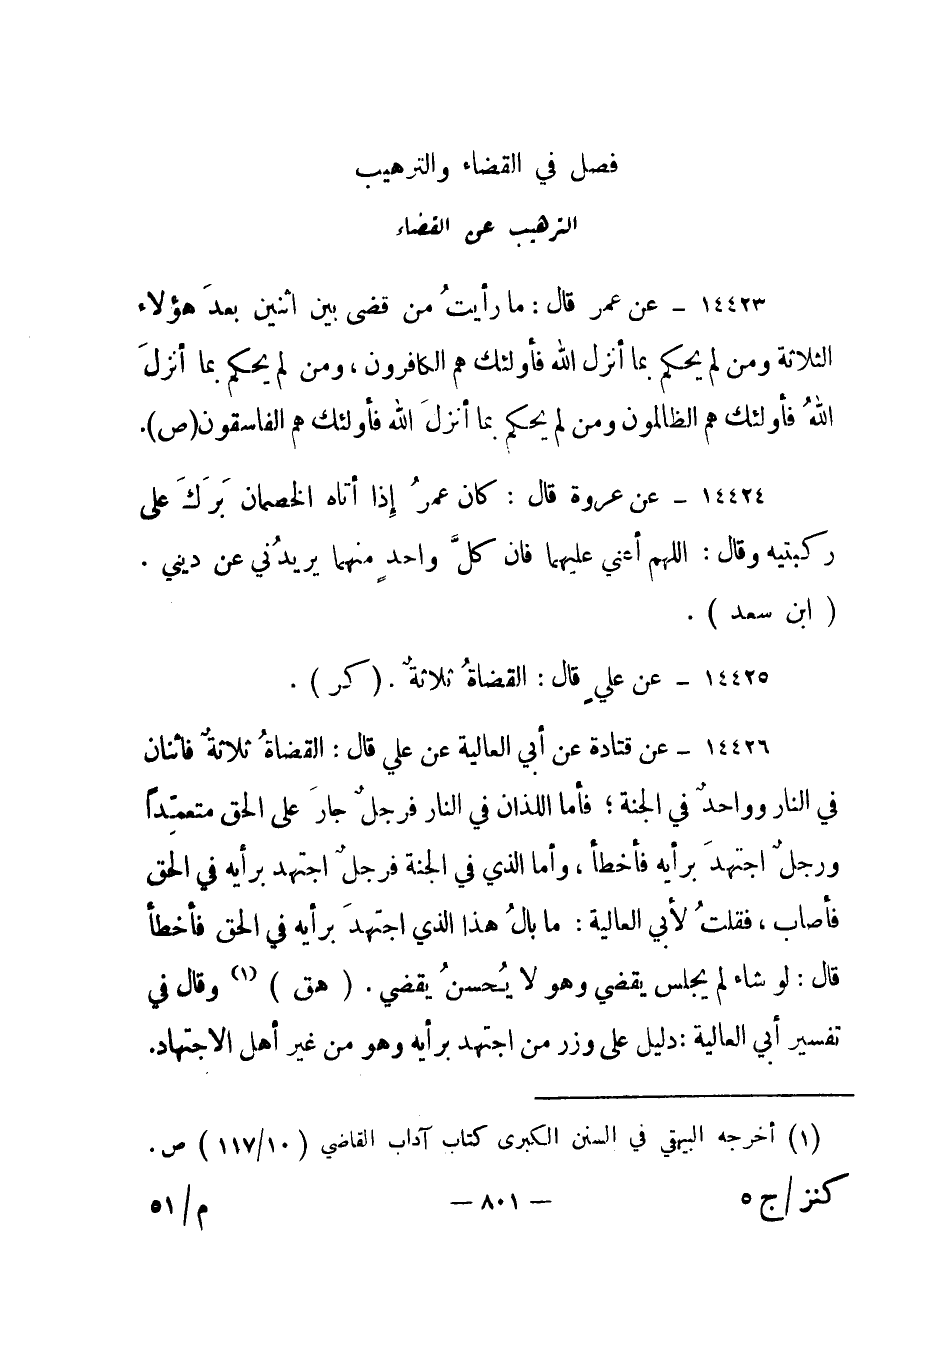 فصل في القضاء والترهيب
الترهيب عن القضاء
١٤٤٢٣ - عن عمر قال : ما رأيتُ من قضى بين اثنين بعدَ هؤلاء
الثلاثة ومن لم يحكم بما أنزل الله فأولئك هم الكافرون ، ومن لم يحكم بما أنزلَ
اللهُ فأولئك هم الظالمون ومن لم يحكم بما أنزلَ الله فأولئك هم الفاسقون (ص).
١٤٤٢٤ - عن عروة قال : كان عمرُ إذا أتاه الخصمان بَرَكَ على
ركبتيه وقال : اللهم أعني عليهما فان كلَّ واحدٍ منهما يريدُني عن ديني .
( ابن سعد ) .
١٤٤٢٥ - عن عليٍ قال : القضاةُ ثلاثةٌ . ( كر ) .
١٤٤٢٦ - عن قتادة عن أبي العالية عن علي قال : القضاةُ ثلاثةٌ فاثنان
في النار وواحدٌ في الجنة ؛ فأما اللذان في النار فرجلٌ جارَ على الحق متعمِّداً
ورجلٌ اجتهدَ برأيه فأخطأ ، وأما الذي في الجنة فرجلٌ اجتهد برأيه في الحق
فأصاب ، فقلتُ لأبي العالية : ما بالُ هذا الذي اجتهدَ برأيه في الحق فأخطأ
قال : لو شاء لم يجلس يقضي وهو لا يُحسنُ يقضي . ( هق ) (١) وقال في
تفسير أبي العالية : دليل على وزر من اجتهد برأيه وهو من غير أهل الاجتهاد.
(١) أخرجه البيهقي في السنن الكبرى كتاب آداب القاضي ( ١١٧/١٠ ) ص .
كنز / ج ٥ — ٨٠١ — م / ٥١